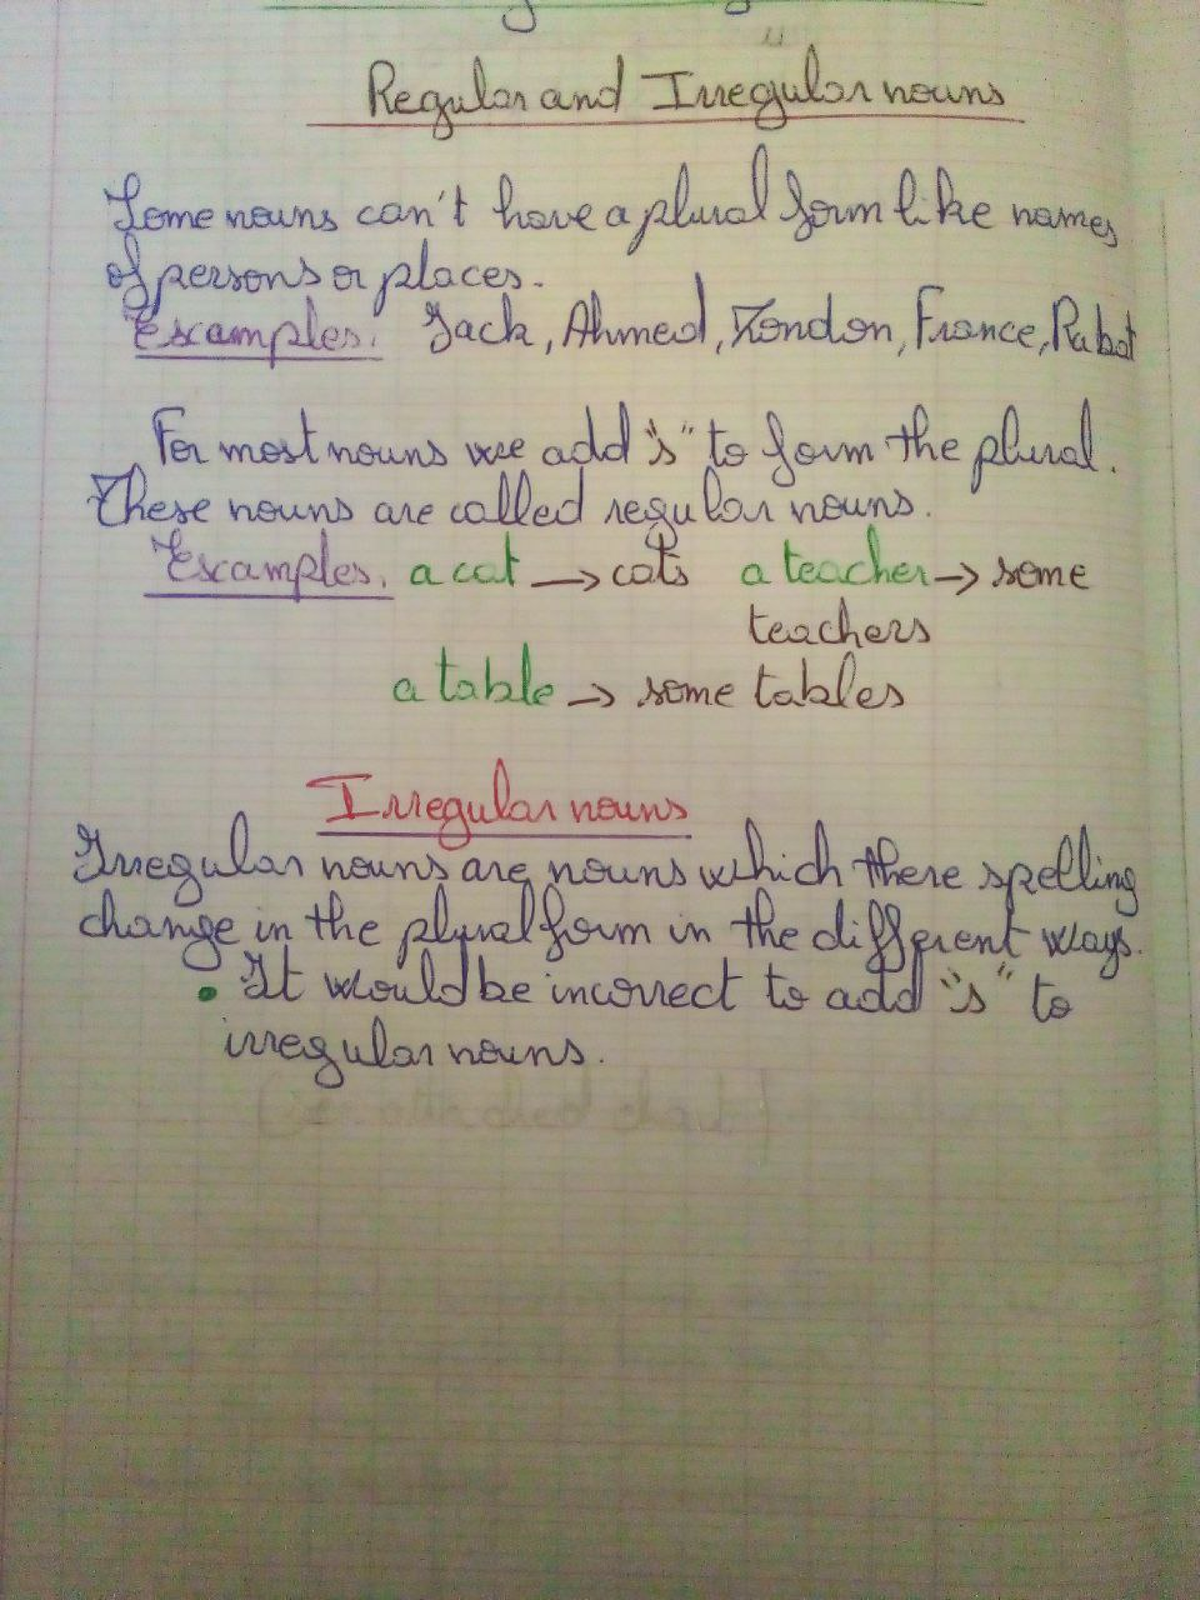 Regular and Irregular nouns
Some nouns can't have a plural form like names
of persons or places.
Examples: Jack, Ahmed, London, France, Rabat
For most nouns we add "s" to form the plural.
These nouns are called regular nouns.
Examples: a cat → cats a teacher → some
teachers
a table → some tables
Irregular nouns
Irregular nouns are nouns which there spelling
change in the plural form in the different ways.
• It would be incorrect to add "s" to
irregular nouns.